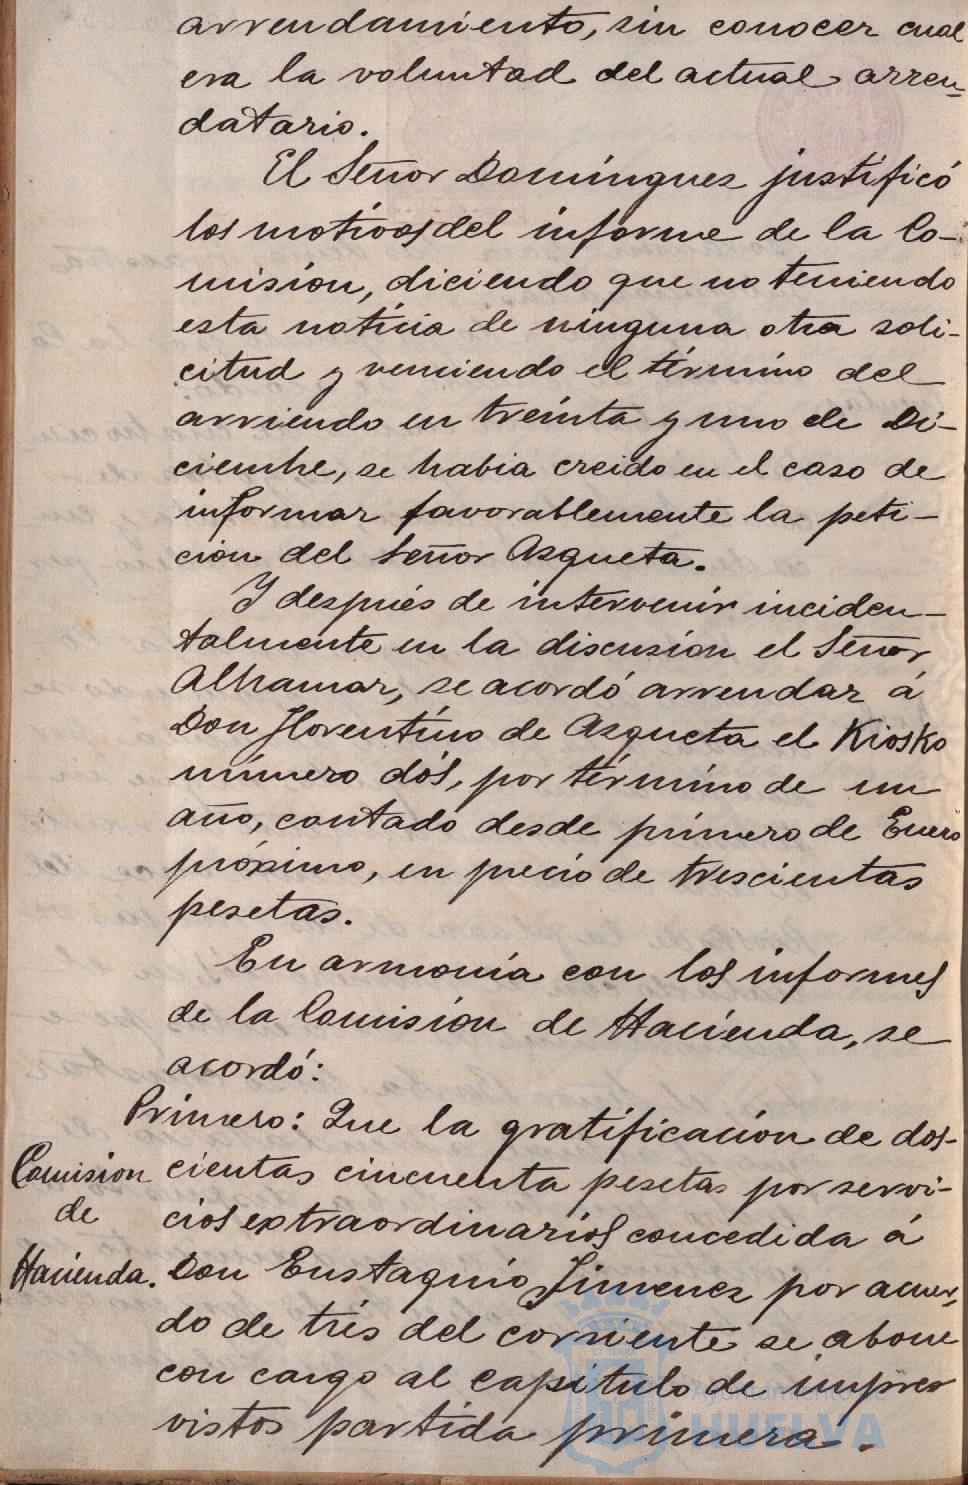 arrendamiento, sin conocer cual
era la voluntad del actual arren-
datario.
El Señor Domínguez justificó
los motivos del informe de la Co-
misión, diciendo que no teniendo
esta noticia de ninguna otra soli-
citud y venciendo el término del
arriendo en treinta y uno de Di-
ciembre, se habia creido en el caso de
informar favorablemente la peti-
cion del Señor Azqueta.
Y después de intervenir inciden-
talmente en la discusión el Señor
Alhamar, se acordó arrendar á
Don Florentino de Azqueta el Kiosko
número dós, por término de un
año, contado desde primero de Enero
próximo, en precio de trescientas
pesetas.
En armonía con los informes
de la Comisión de Hacienda, se
acordó:
Comision
de
Hacienda.
Primero: Que la gratificación de dos-
cientas cincuenta pesetas por servi-
cios extraordinarios concedida á
Don Eustaquio Jimenez por acuer-
do de trés del corriente se abone
con cargo al capitulo de impre
vistos partida primera.
Ayuntamiento de
HUELVA